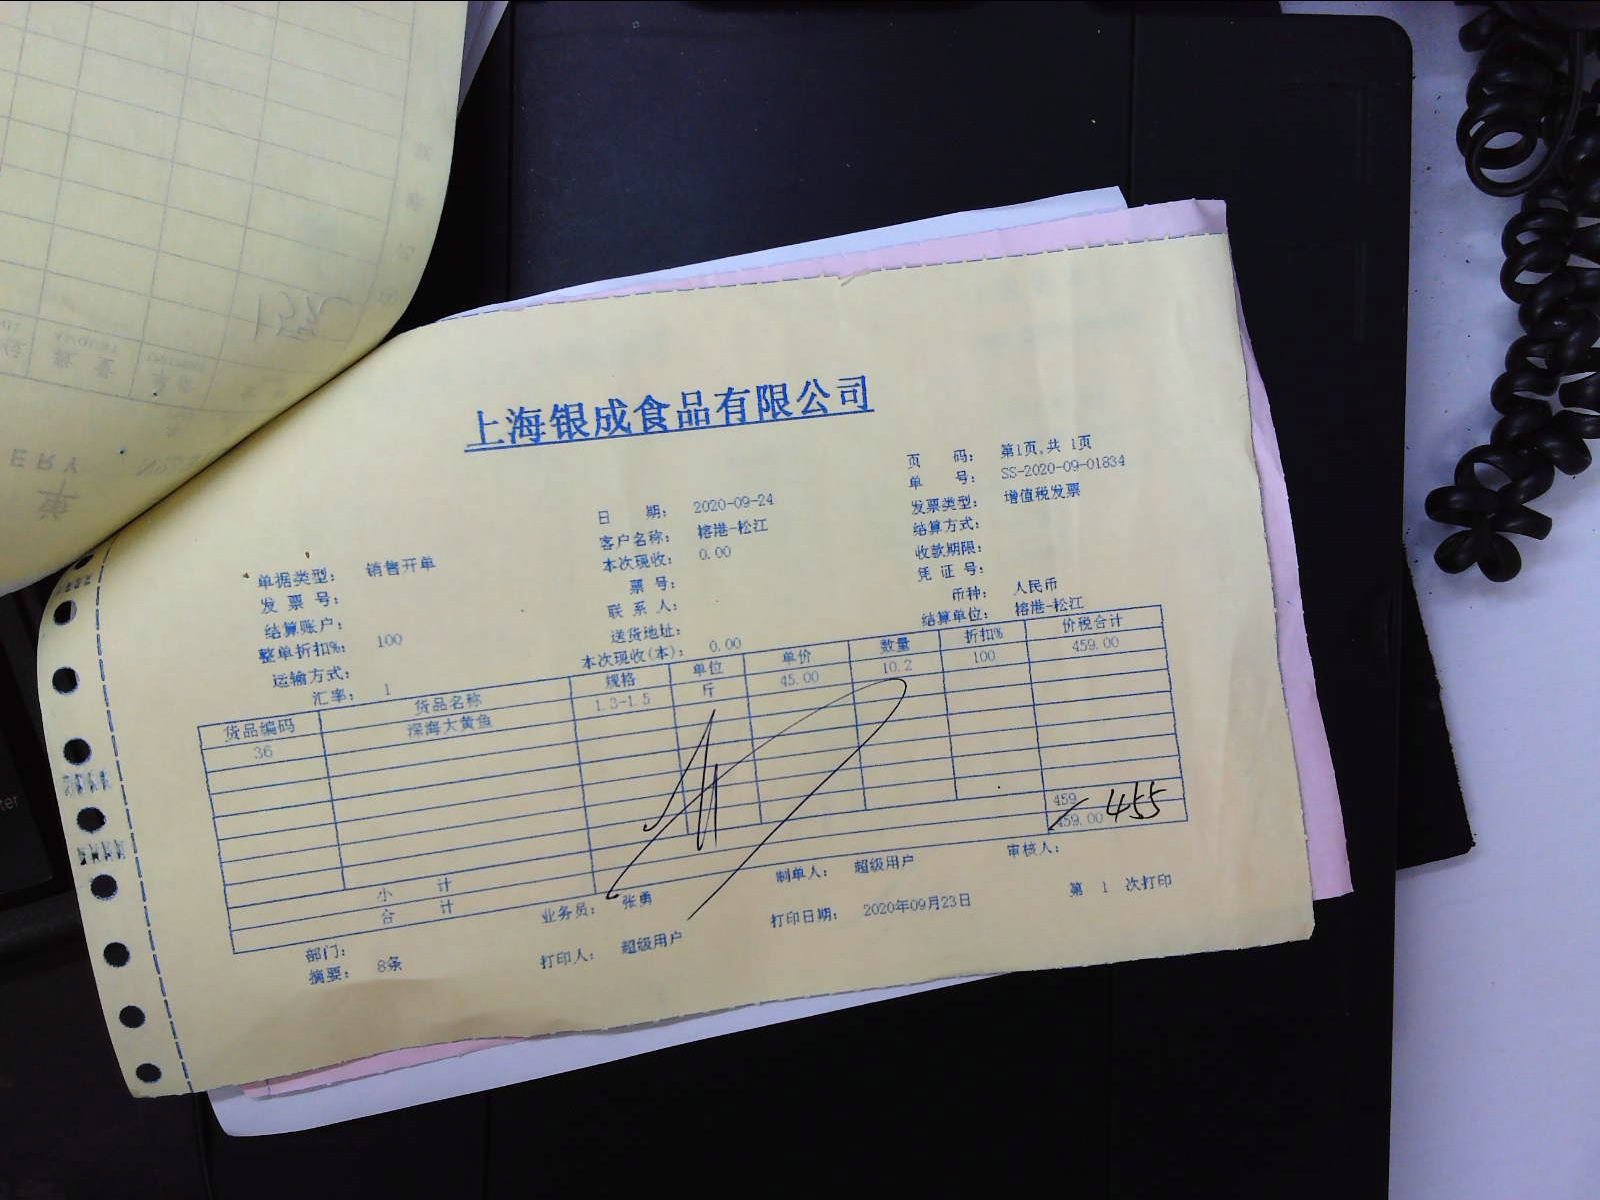 上海银成食品有限公司
页 码： 第1页,共 1页
单 号： SS-2020-09-01834
日 期： 2020-09-24 发票类型： 增值税发票
客户名称： 榕港-松江 结算方式：
单据类型： 销售开单 本次现收： 0.00 收款期限：
发 票 号： 票 号： 凭 证 号：
结算账户： 联 系 人： 币种： 人民币
整单折扣%： 100 送货地址： 结算单位： 榕港-松江
运输方式： 本次现收(本)： 0.00
汇率： 1
货品编码 货品名称 规格 单位 单价 数量 折扣% 价税合计
36 深海大黄鱼 1.3-1.5 斤 45.00 10.2 100 459.00
小 计 459
合 计 459.00 455
部门： 业务员： 张勇 制单人： 超级用户 审核人：
摘要： 8条 打印人： 超级用户 打印日期： 2020年09月23日 第 1 次打印